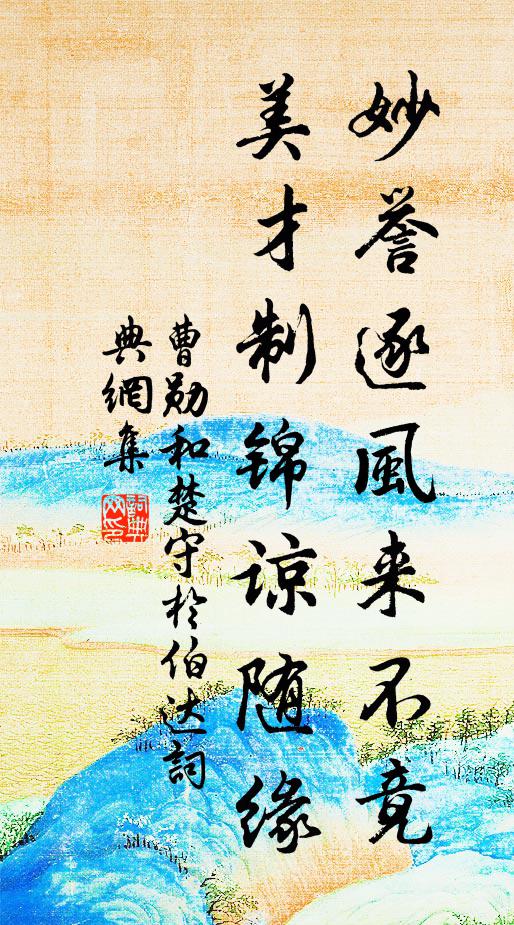 妙誉逐風来不竟
美才制锦谅随缘
曹勋和楚守於伯达詞
典網集